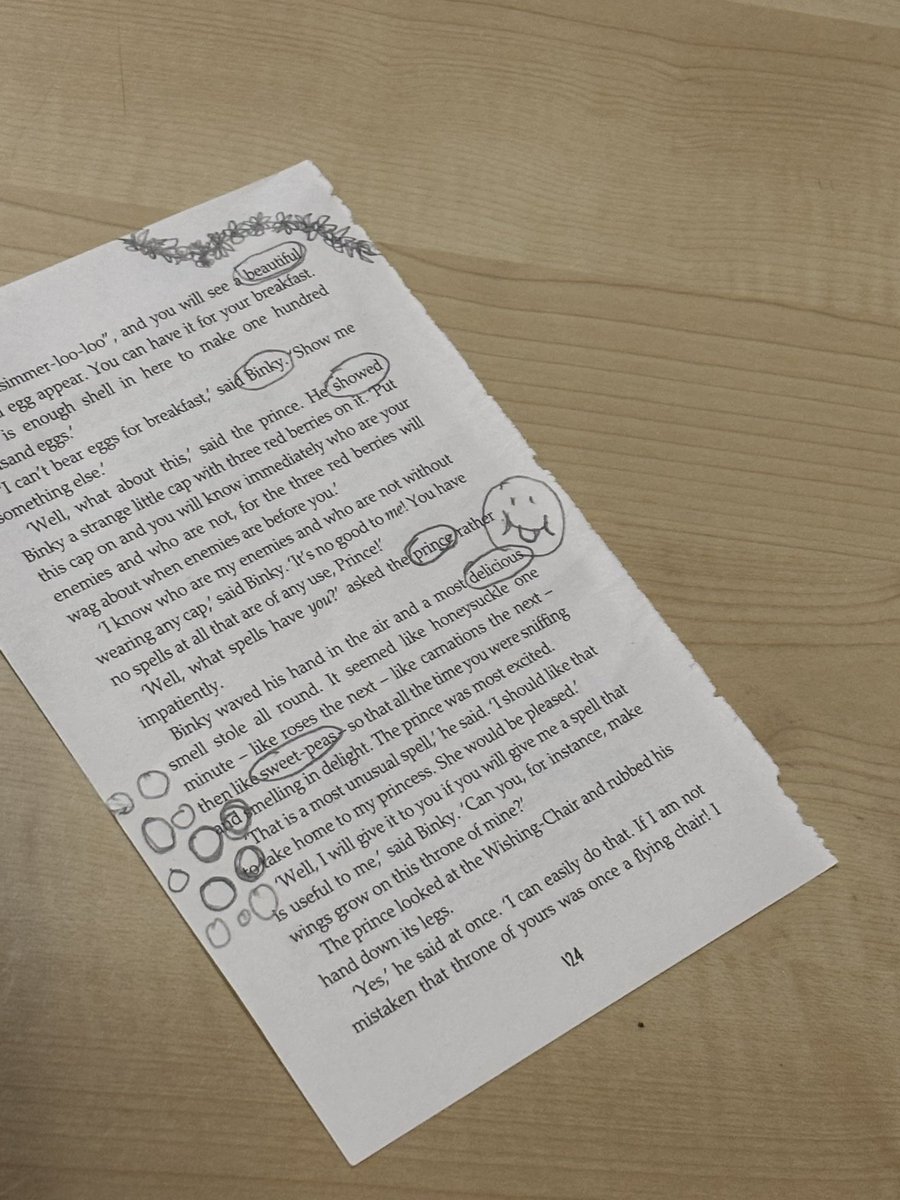 simmer-loo-loo", and you will see a beautiful
egg appear. You can have it for your breakfast.
is enough shell in here to make one hundred
sand eggs.'
'I can't bear eggs for breakfast,' said Binky. 'Show me
something else.'
'Well, what about this,' said the prince. He showed
Binky a strange little cap with three red berries on it. 'Put
this cap on and you will know immediately who are your
enemies and who are not, for the three red berries will
wag about when enemies are before you.'
'I know who are my enemies and who are not without
wearing any cap,' said Binky. 'It's no good to me! You have
no spells at all that are of any use, Prince!'
'Well, what spells have you?' asked the prince rather
impatiently.
Binky waved his hand in the air and a most delicious
smell stole all round. It seemed like honeysuckle one
minute – like roses the next – like carnations the next –
then like sweet-peas, so that all the time you were sniffing
and smelling in delight. The prince was most excited.
'That is a most unusual spell,' he said. 'I should like that
to take home to my princess. She would be pleased.'
'Well, I will give it to you if you will give me a spell that
is useful to me,' said Binky. 'Can you, for instance, make
wings grow on this throne of mine?'
The prince looked at the Wishing-Chair and rubbed his
hand down its legs.
'Yes,' he said at once. 'I can easily do that. If I am not
mistaken that throne of yours was once a flying chair! I
124